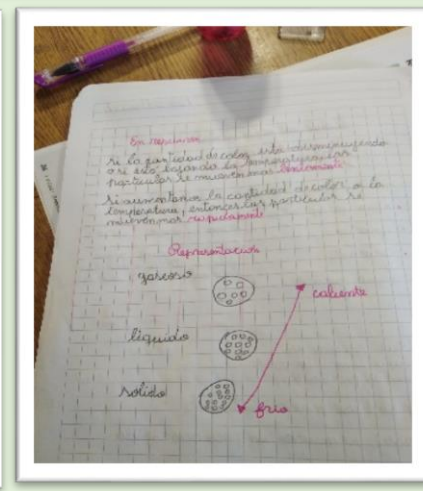 En resumen
Si la cantidad de calor esta disminuyendo
o si esta bajando la temperatura las
particulas se mueven mas lentamente
Si aumentamos la cantidad de calor o la
temperatura, entonces las particulas se
mueven mas rapidamente
Representación
gaseoso
caliente
liquido
solido
frio